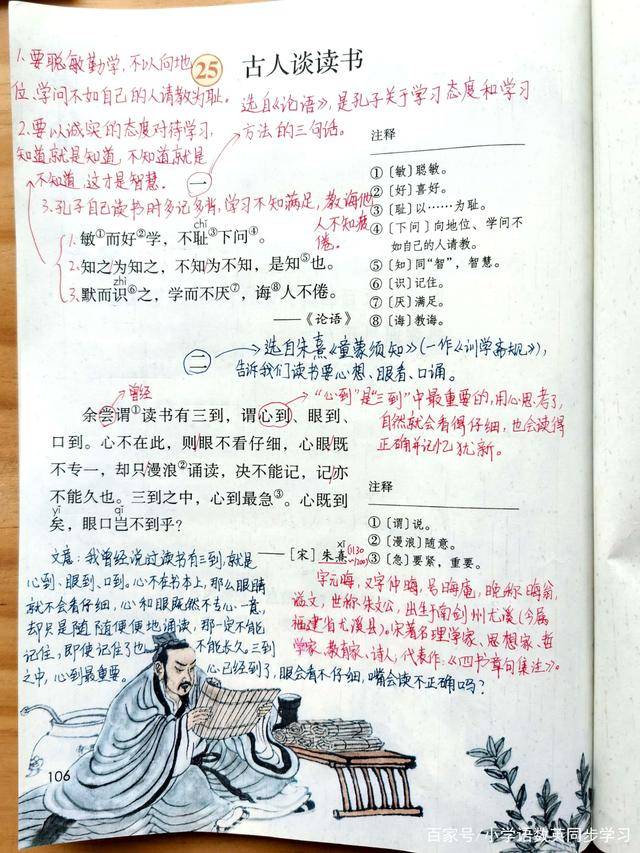 1.要聪敏勤学,不以向地
位、学问不如自己的人请教为耻。
25 古人谈读书
选自《论语》,是孔子关于学习态度和学习
方法的三句话。
2.要以诚实的态度对待学习,
知道就是知道,不知道就是
不知道,这才是智慧。
一
3.孔子自己读书时多记多背,学习不知满足,教诲他
人不知疲
倦。
chǐ
1.敏①而好②学,不耻③下问④。
2.知之/为知之,不知/为不知,是知⑤也。
zhì
3.默而识⑥之,学而不厌⑦,诲⑧人不倦。
——《论语》
注释
①〔敏〕聪敏。
②〔好〕喜好。
③〔耻〕以……为耻。
④〔下问〕向地位、学问不
如自己的人请教。
⑤〔知〕同“智”,智慧。
⑥〔识〕记住。
⑦〔厌〕满足。
⑧〔诲〕教诲。
二
选自朱熹《童蒙须知》(一作《训学斋规》),
告诉我们读书要心想、眼看、口诵。
曾经
“心到”是“三到”中最重要的,用心思考了,
自然就会看得仔细,也会读得
正确并记忆犹新。
余尝谓①读书有三到,谓心到、眼到、
口到。心不在此,则眼不看仔细,心眼既
不专一,却只漫浪②诵读,决不能记,记亦
不能久也。三到之中,心到最急③。心既到
yǐ qǐ
矣,眼口岂不到乎?
xī
——〔宋〕朱熹(1130
~1200)
注释
①〔谓〕说。
②〔漫浪〕随意。
③〔急〕要紧,重要。
文意:我曾经说过读书有三到,就是
心到、眼到、口到。心不在书本上,那么眼睛
就不会看仔细,心和眼既然不专心一意,
却只是随随便便地诵读,那一定不能
记住,即使记住了也不能永久。三到
之中,心到最重要。心已经到了,眼会看不仔细,嘴会读不正确吗?
字元晦,又字仲晦,号晦庵,晚称晦翁,
谥文,世称朱文公,出生于南剑州尤溪(今属
福建省尤溪县)。宋著名理学家、思想家、哲
学家、教育家、诗人,代表作:《四书章句集注》。
106
百家号/小学语数英同步学习